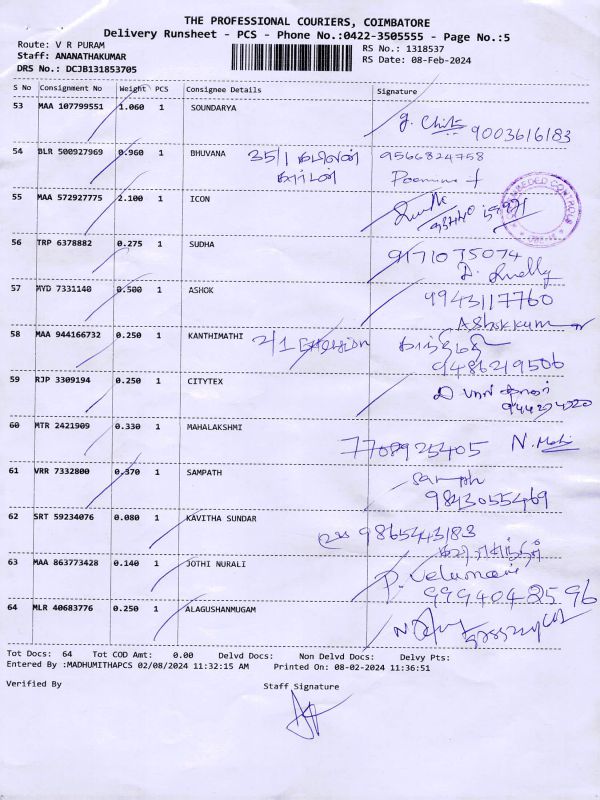 THE PROFESSIONAL COURIERS, COIMBATORE
Delivery Runsheet - PCS - Phone No.:0422-3505555 - Page No.:5
Route: V R PURAM
Staff: ANANATHAKUMAR
DRS No.: DCJB131853705
RS No.: 1318537
RS Date: 08-Feb-2024
S No Consignment No Weight PCS Consignee Details Signature
53 MAA 107799551 1.060 1 SOUNDARYA
9003616183
54 BLR 500927969 0.960 1 BHUVANA 35/1 9566824758
55 MAA 572927775 2.100 1 ICON
56 TRP 6378882 0.275 1 SUDHA 9171075074
57 MYD 7331140 0.500 1 ASHOK 9943117760
Ashokkumar
58 MAA 944166732 0.250 1 KANTHIMATHI 2/1 காந்திமதி
9486219506
59 RJP 3309194 0.250 1 CITYTEX
60 MTR 2421909 0.330 1 MAHALAKSHMI
7708925405
61 VRR 7332800 0.370 1 SAMPATH
9843055469
62 SRT 59234076 0.080 1 KAVITHA SUNDAR
9865443183
63 MAA 863773428 0.140 1 JOTHI NURALI
P. Velumani
9994042596
64 MLR 40683776 0.250 1 ALAGUSHANMUGAM
Tot Docs: 64 Tot COD Amt: 0.00 Delvd Docs: Non Delvd Docs: Delvy Pts:
Entered By :MADHUMITHAPCS 02/08/2024 11:32:15 AM Printed On: 08-02-2024 11:36:51
Verified By Staff Signature